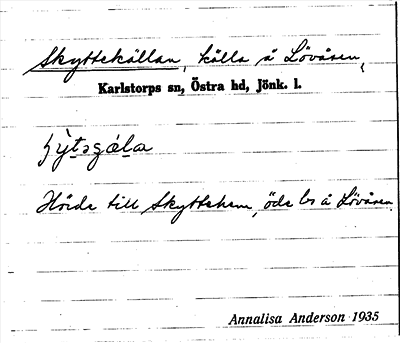 Skyttekällan, källa å Lövåsen,
Karlstorps sn, Östra hd, Jönk. l.
Hörde till Skyttehem, öde ls å Lövåsen.
Annalisa Anderson 1935